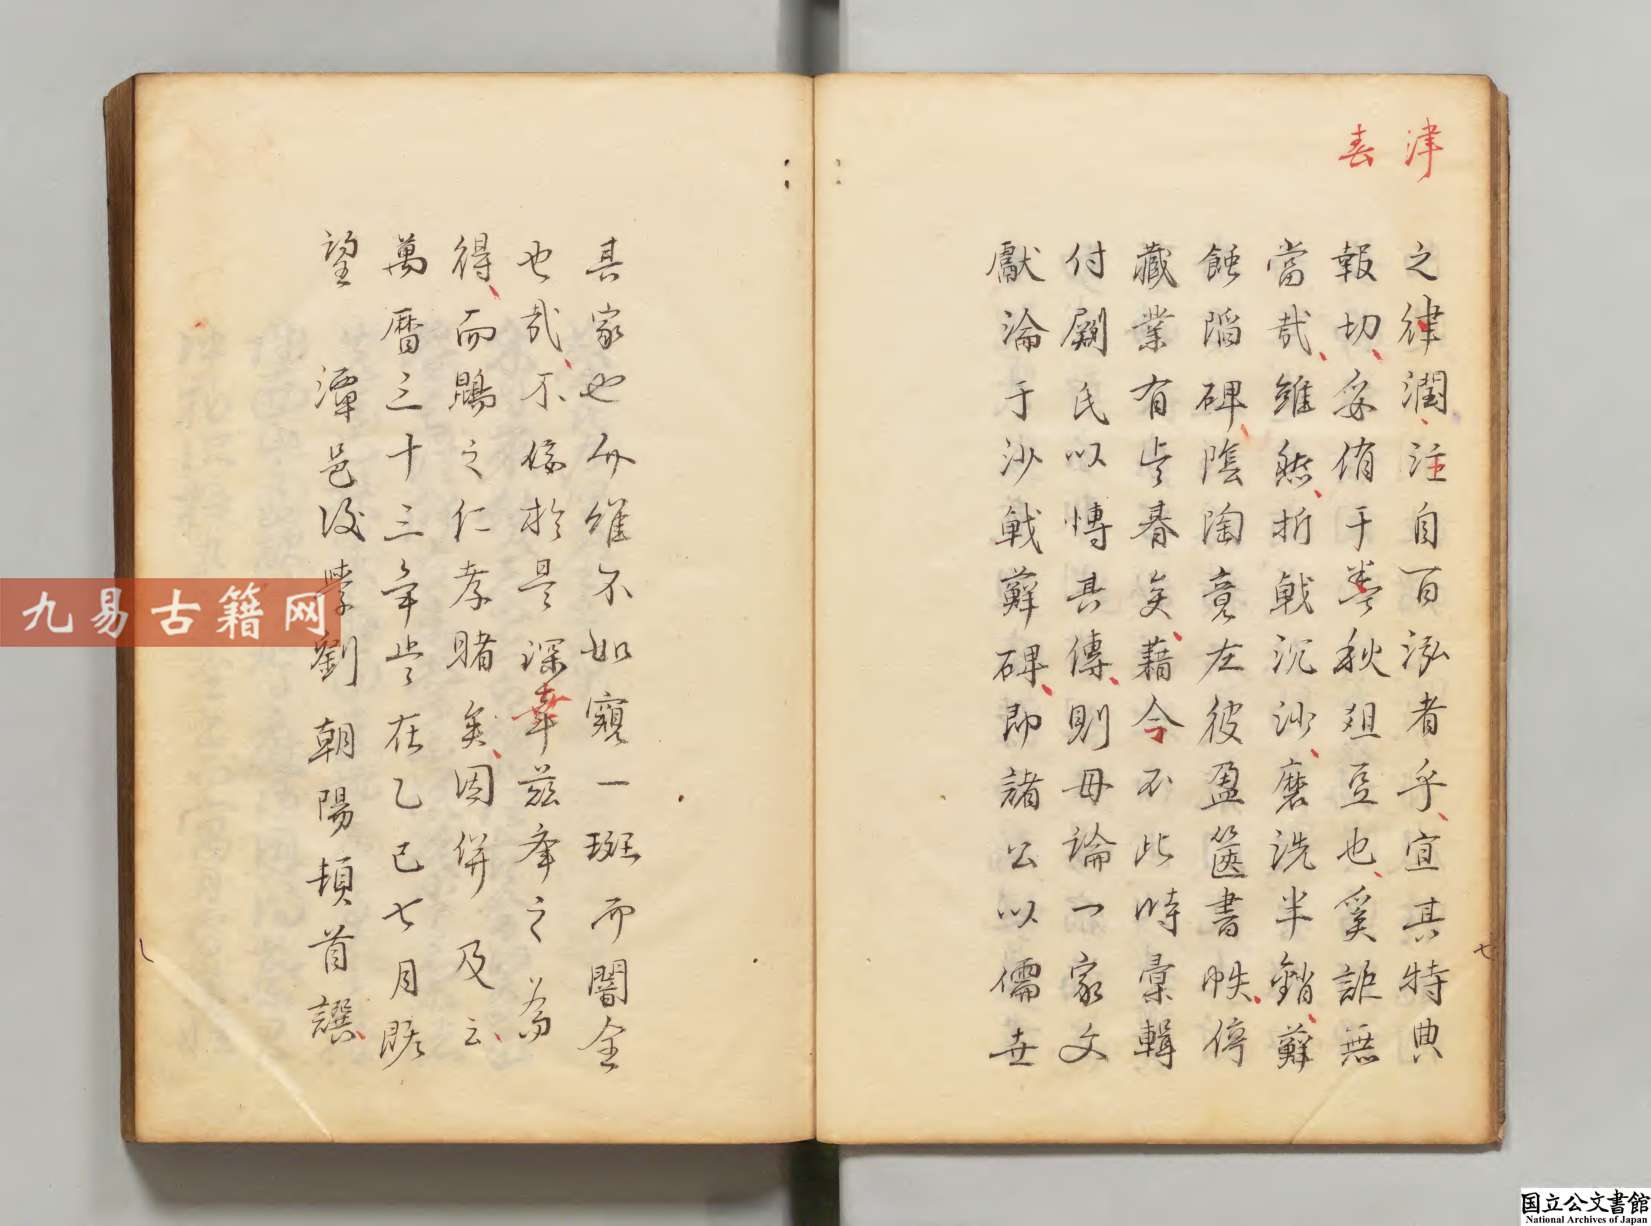 津
春
之律潤注自百泓者乎宜其特典
報切妥侑于春秋俎豆也奚詎無
當哉雖然折戟沉沙磨洗半銷蘚
蝕蹈碑陰陶竟左彼盈篋書帙停
藏業有年春矣藉令不此時彙輯
付劂氏以博其傳則毋論一家文
獻淪于沙戟蘚碑即諸公以儒世
其家也亦雖不如窺一斑而闇全
也哉不佞於是深幸茲牽之為
得而賜之仁孝賭矣因併及云
萬曆三十三年歲在乙巳七月既
望 潭邑後學劉朝陽頓首譔
七
九易古籍网
国立公文書館
National Archives of Japan